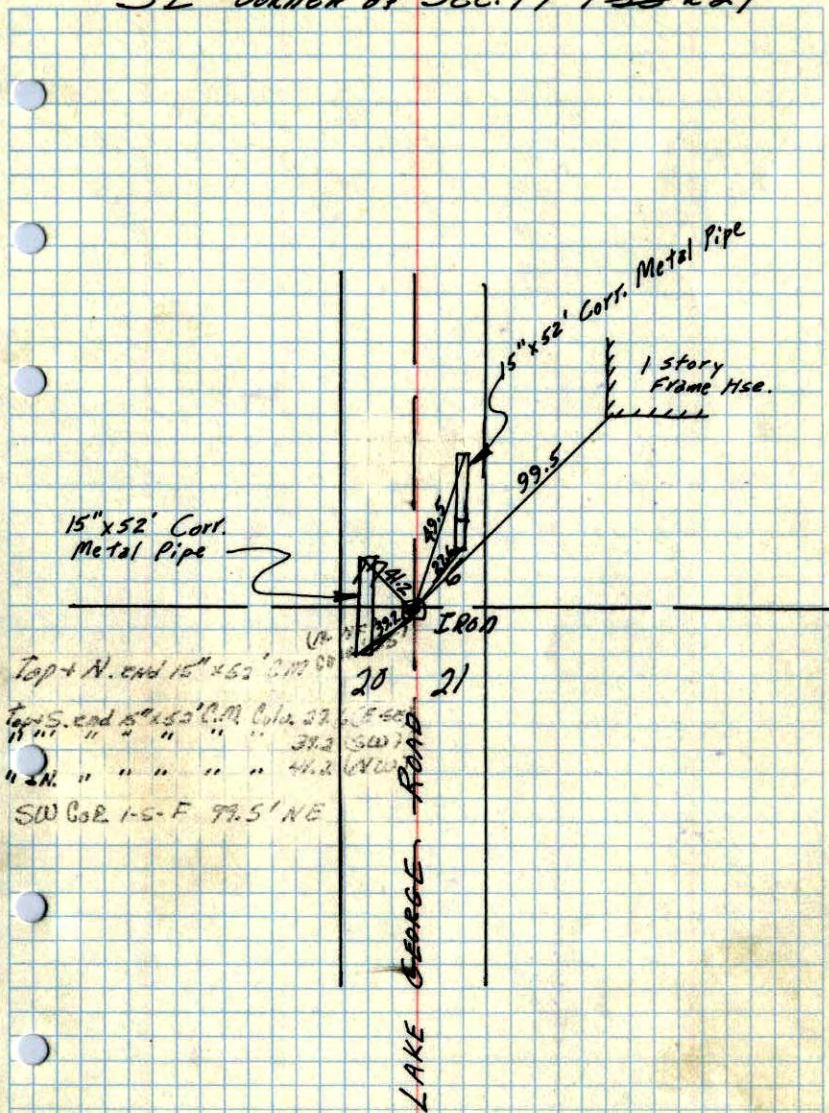 SE CORNER OF SEC. 17
15"x52' Corr. Metal Pipe
1 story
Frame Hse.
99.5
49.5
15"x52' Corr.
Metal Pipe
41.2
39.2
IRON
20 21
Top & N. end 15"x52' C.M.
Top & S. end 15"x52' C.M.
" " " " " " " 39.2 (SW)
" & N. " " " " " 41.2 (NW)
SW COR. 1-S-F 99.5' NE
LAKE GEORGE ROAD